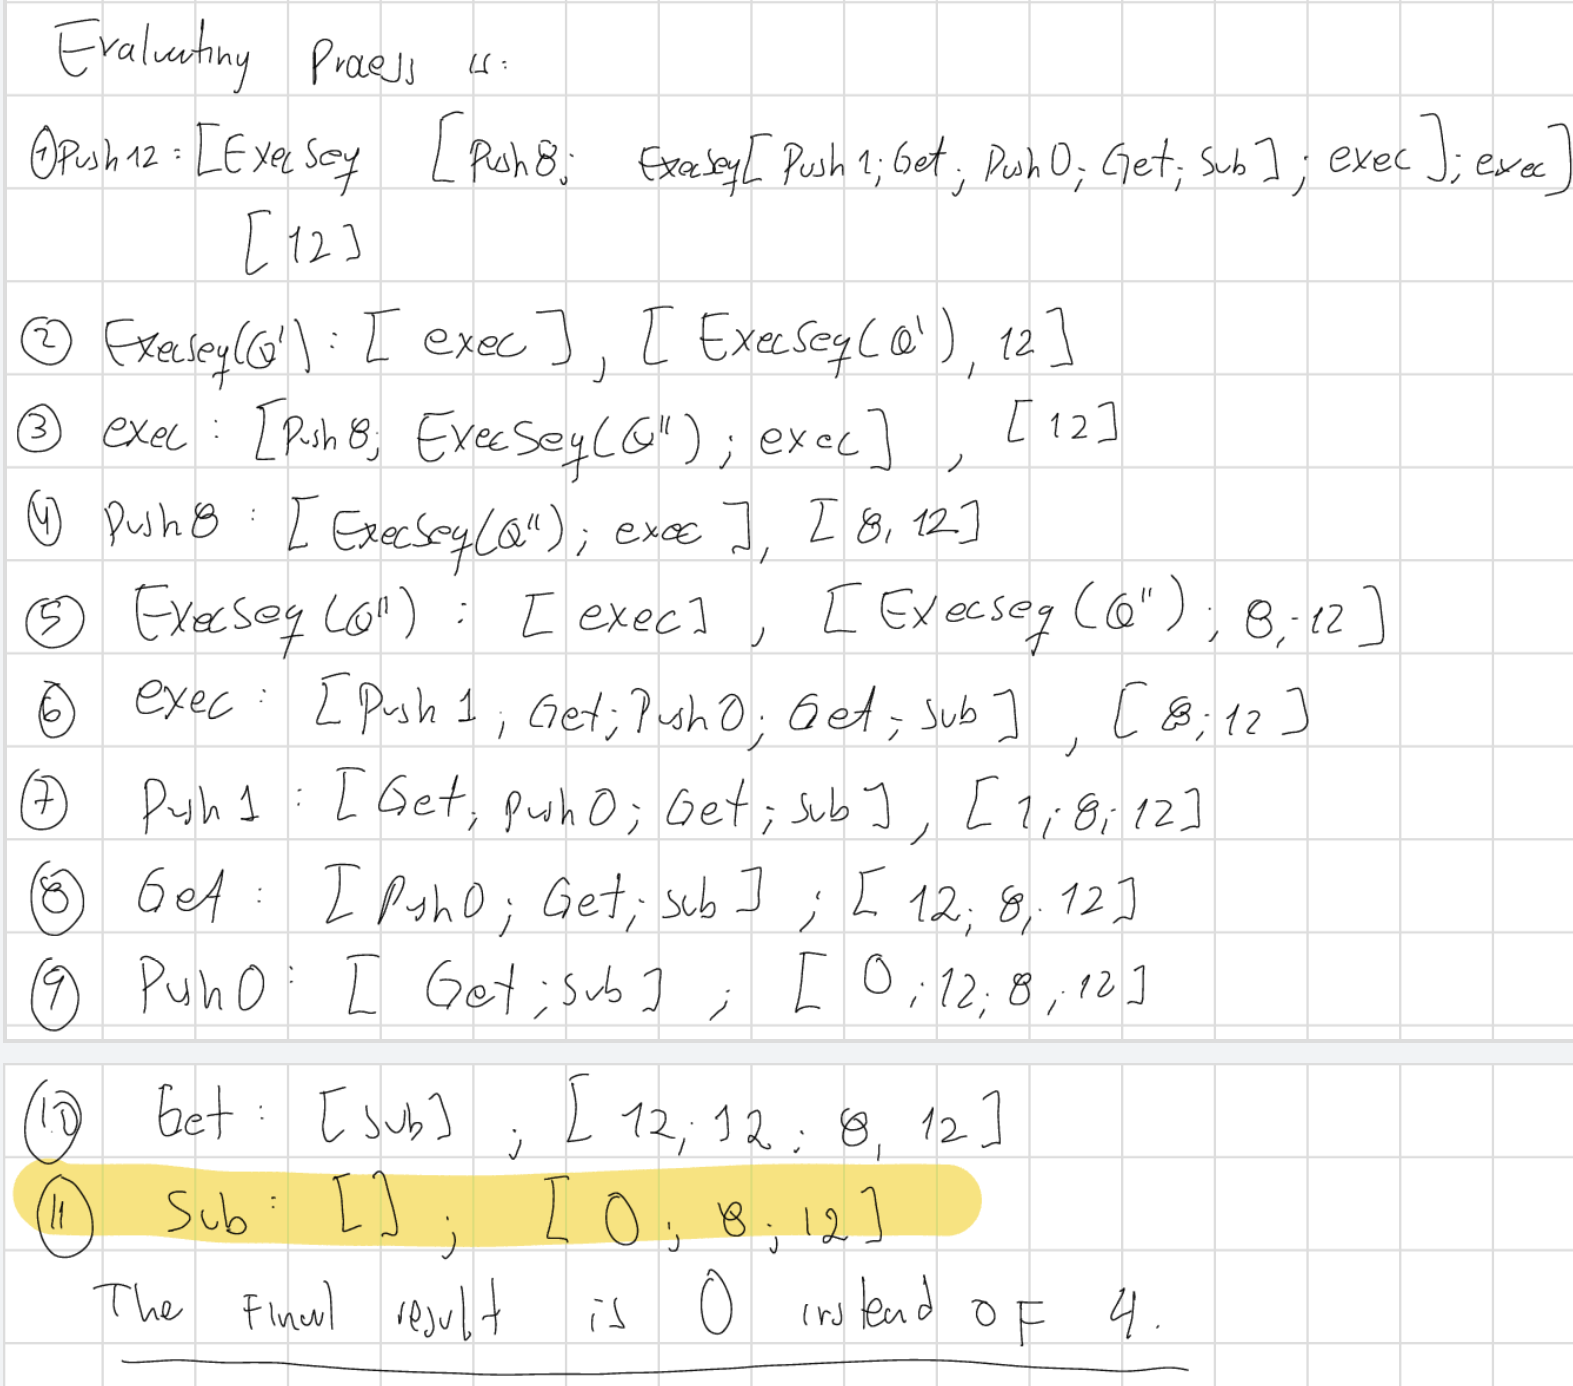 Evaluating Process is:
① Push 12 : [ExecSeq [Push 8; ExecSeq[Push 1; Get; Push 0; Get; Sub]; exec]; exec]
[12]
② ExecSeq(Q') : [exec], [ExecSeq(Q'), 12]
③ exec : [Push 8; ExecSeq(Q''); exec], [12]
④ Push 8 : [ExecSeq(Q''); exec], [8, 12]
⑤ ExecSeq(Q'') : [exec], [ExecSeq(Q''); 8; 12]
⑥ exec : [Push 1; Get; Push 0; Get; Sub], [8; 12]
⑦ Push 1 : [Get; push 0; Get; sub], [1; 8; 12]
⑧ Get : [Push 0; Get; sub]; [12; 8; 12]
⑨ Push 0 : [Get; sub]; [0; 12; 8; 12]
⑩ Get : [sub]; [12; 12; 8, 12]
⑪ Sub : []; [0; 8; 12]
The Final result is 0 instead of 4.